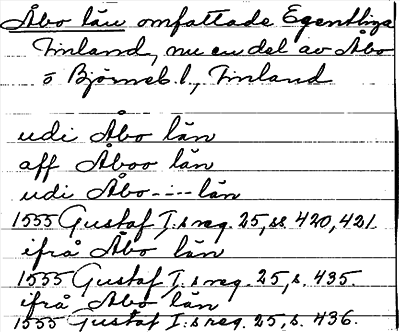 Åbo län omfattade Egentliga
Finland, nu en del av Åbo
o Björneb. l., Finland
udi Åbo län
aff Åboo län
udi Åbo---län
1555 Gustaf I:s reg. 25, ss. 420, 421.
ifrå Åbo län
1555 Gustaf I:s reg. 25, s. 435.
ifrå Åbo län
1555 Gustaf I:s reg. 25, s. 436.